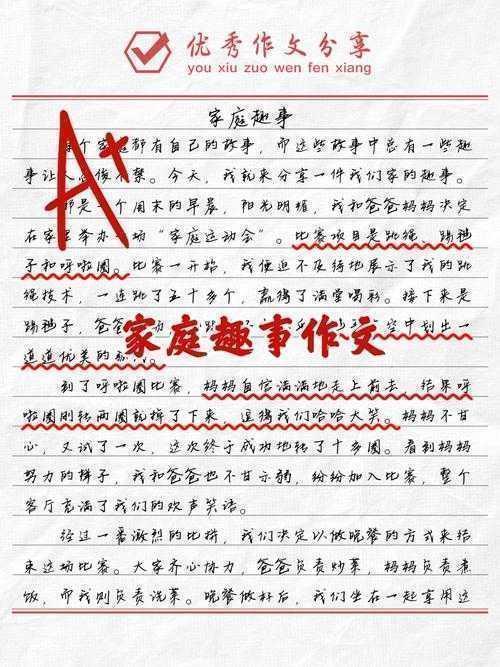 优秀作文分享
you xiu zuo wen fen xiang
家庭趣事
A+
个家庭都有自己的故事，而这些故事中总有一些趣
事让人忍俊不禁。今天，我就来分享一件我们家的趣事。
那是一个周末的早晨，阳光明媚，我和爸爸妈妈决定
在家里举办一场“家庭运动会”。比赛项目是跳绳、踢毽
子和呼啦圈。比赛一开始，我便迫不及待地展示了我的跳
绳技术，一连跳了五十多个，赢得了满堂喝彩。接下来是
踢毽子，爸爸 空中划出一
道道优美的
家庭趣事作文
到了呼啦圈比赛，妈妈自信满满地走上前去，结果呼
啦圈刚转两圈就掉了下来，逗得我们哈哈大笑。妈妈不甘
心，又试了一次，这次终于成功地转了十多圈。看到妈妈
努力的样子，我和爸爸也不甘示弱，纷纷加入比赛，整个
客厅充满了我们的欢声笑语。
经过一番激烈的比拼，我们决定以做晚餐的方式来结
束这场比赛。大家齐心协力，爸爸负责炒菜，妈妈负责煮
饭，而我则负责洗菜。晚餐做好后，我们坐在一起享用这